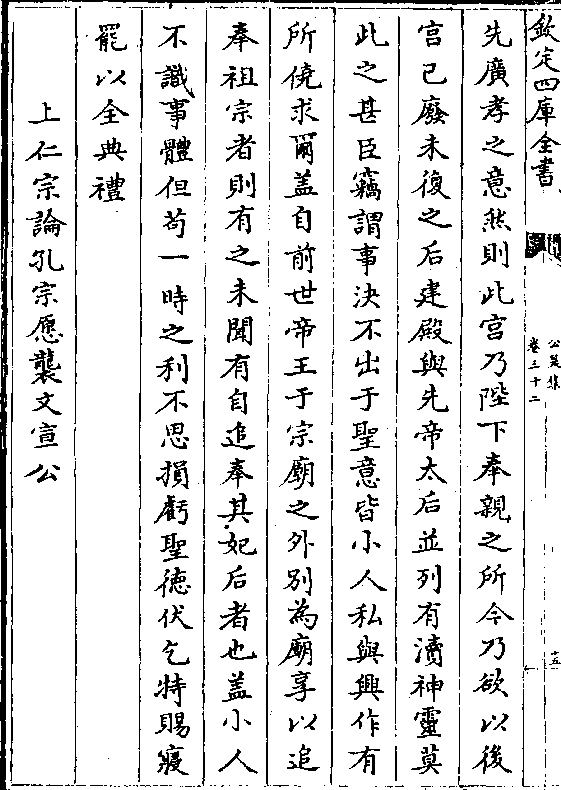 欽定四庫全書
公是集
卷三十二
十五
先廣孝之意然則此宮乃陛下奉親之所今乃欲以後
宮已廢未復之后建殿與先帝太后並列有瀆神靈莫
此之甚臣竊謂事決不出于聖意皆小人私與興作有
所僥求爾盖自前世帝王于宗廟之外別為廟享以追
奉祖宗者則有之未聞有自追奉其妃后者也盖小人
不識事體但苟一時之利不思損虧聖徳伏乞特賜寢
罷以全典禮
上仁宗論孔宗愿襲文宣公